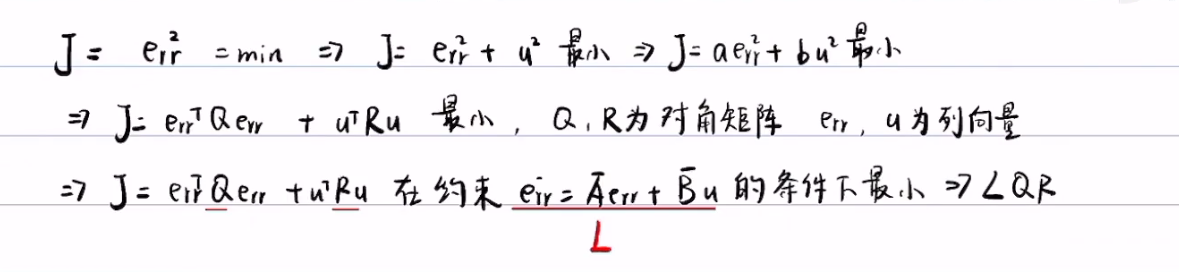 J = err² = min ⇒ J = err² + u² 最小 ⇒ J = a err² + b u² 最小
⇒ J = errᵀQerr + uᵀRu 最小, Q, R为对角矩阵 err, u为列向量
⇒ J = errᵀQerr + uᵀRu 在约束 ėrr = Āerr + B̄u 的条件下最小 ⇒ LQR
L